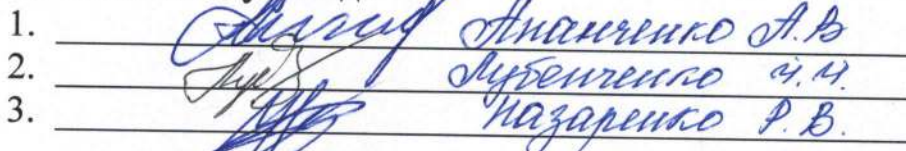 1. Ананченко А.В
2. Лубенченко И.И.
3. Назаренко Р.В.